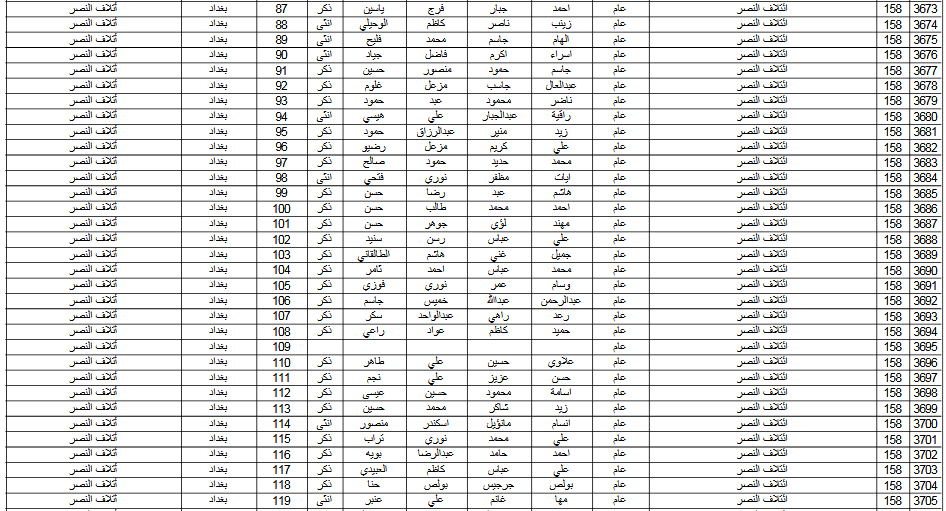 3673 158 ائتلاف النصر عام احمد جبار فرج ياسين ذكر 87 بغداد أئتلاف النصر
3674 158 ائتلاف النصر عام زينب ناصر كاظم الوحيلي انثى 88 بغداد أئتلاف النصر
3675 158 ائتلاف النصر عام الهام جاسم محمد فليح انثى 89 بغداد أئتلاف النصر
3676 158 ائتلاف النصر عام اسراء اكرم فاضل جياد انثى 90 بغداد أئتلاف النصر
3677 158 ائتلاف النصر عام جاسم حمود منصور حسين ذكر 91 بغداد أئتلاف النصر
3678 158 ائتلاف النصر عام عبدالعال جاسب مزعل غلوم ذكر 92 بغداد أئتلاف النصر
3679 158 ائتلاف النصر عام ناصر محمود عبد حمود ذكر 93 بغداد أئتلاف النصر
3680 158 ائتلاف النصر عام راقية عبدالجبار علي هيسي انثى 94 بغداد أئتلاف النصر
3681 158 ائتلاف النصر عام زيد منير عبدالرزاق حمود ذكر 95 بغداد أئتلاف النصر
3682 158 ائتلاف النصر عام علي كريم مزعل رضيو ذكر 96 بغداد أئتلاف النصر
3683 158 ائتلاف النصر عام محمد حديد حمود صالح ذكر 97 بغداد أئتلاف النصر
3684 158 ائتلاف النصر عام ايات مظفر نوري فتحي انثى 98 بغداد أئتلاف النصر
3685 158 ائتلاف النصر عام هاشم عبد رضا حسن ذكر 99 بغداد أئتلاف النصر
3686 158 ائتلاف النصر عام احمد محمد طالب حسن ذكر 100 بغداد أئتلاف النصر
3687 158 ائتلاف النصر عام مهند لؤي جوهر حسن ذكر 101 بغداد أئتلاف النصر
3688 158 ائتلاف النصر عام علي عباس رسن سنيد ذكر 102 بغداد أئتلاف النصر
3689 158 ائتلاف النصر عام جميل غني هاشم الطالقاني ذكر 103 بغداد أئتلاف النصر
3690 158 ائتلاف النصر عام محمد عباس احمد ثامر ذكر 104 بغداد أئتلاف النصر
3691 158 ائتلاف النصر عام وسام عمر نوري فوزي ذكر 105 بغداد أئتلاف النصر
3692 158 ائتلاف النصر عام عبدالرحمن عبدالله خميس جاسم ذكر 106 بغداد أئتلاف النصر
3693 158 ائتلاف النصر عام رعد راهي عبدالواحد سكر ذكر 107 بغداد أئتلاف النصر
3694 158 ائتلاف النصر عام حميد كاظم عواد راعي ذكر 108 بغداد أئتلاف النصر
3695 158 ائتلاف النصر عام 109 بغداد أئتلاف النصر
3696 158 ائتلاف النصر عام علاوي حسين علي طاهر ذكر 110 بغداد أئتلاف النصر
3697 158 ائتلاف النصر عام حسن عزيز علي نجم ذكر 111 بغداد أئتلاف النصر
3698 158 ائتلاف النصر عام اسامة محمود حسين عيسى ذكر 112 بغداد أئتلاف النصر
3699 158 ائتلاف النصر عام زيد شاكر محمد حسين ذكر 113 بغداد أئتلاف النصر
3700 158 ائتلاف النصر عام انسام مانؤيل اسكندر منصور انثى 114 بغداد أئتلاف النصر
3701 158 ائتلاف النصر عام علي محمد نوري تراب ذكر 115 بغداد أئتلاف النصر
3702 158 ائتلاف النصر عام احمد حامد عبدالرضا بويه ذكر 116 بغداد أئتلاف النصر
3703 158 ائتلاف النصر عام علي عباس كاظم العبيدي ذكر 117 بغداد أئتلاف النصر
3704 158 ائتلاف النصر عام بولص جرجيس بولص حنا ذكر 118 بغداد أئتلاف النصر
3705 158 ائتلاف النصر عام مها غانم علي عنبر انثى 119 بغداد أئتلاف النصر